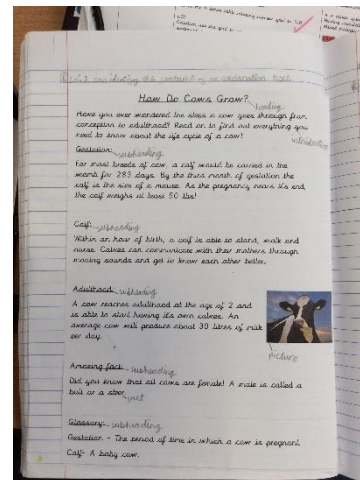 How Do Cows Grow?
heading
Have you ever wondered the steps a cow goes through from
conception to adulthood? Read on to find out everything you
need to know about the life cycle of a cow!
introduction
Gestation: subheading
For most breeds of cow, a calf would be carried in the
womb for 283 days. By the third month of gestation the
calf is the size of a mouse. As the pregnancy nears its end,
the calf weighs at least 50 lbs!
Calf: subheading
Within an hour of birth, a calf is able to stand, walk and
nurse. Calves can communicate with their mothers through
mooing sounds and get to know each other better.
Adulthood: subheading
A cow reaches adulthood at the age of 2 and
is able to start having its own calves. An
average cow will produce about 30 litres of milk
per day.
picture
Amazing fact: subheading
Did you know that all cows are female! A male is called a
bull or a steer.
Glossary: subheading
Gestation - The period of time in which a cow is pregnant.
Calf- A baby cow.